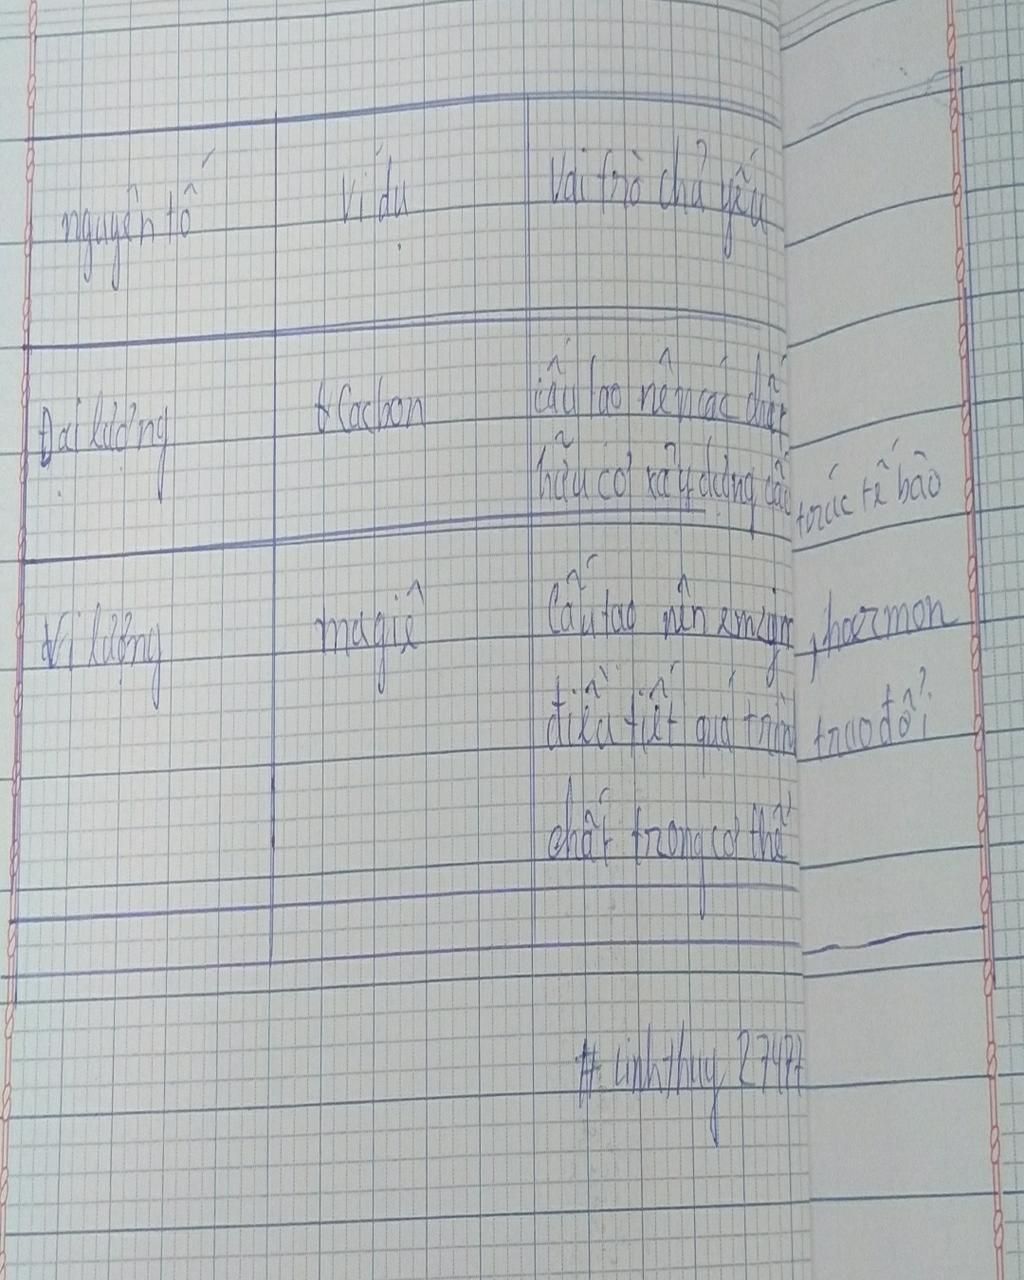 nguyên tố ví dụ vai trò chủ yếu
Đại lượng + Cacbon cấu tạo nên các chất
hữu cơ xây dựng cấu trúc tế bào
Vi lượng magiê Cấu tạo nên enzym, hoormon
điều tiết quá trình trao đổi
chất trong cơ thể
# linhthuy 27477